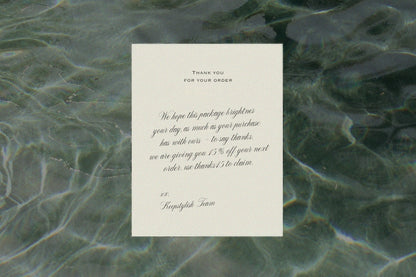 THANK YOU
FOR YOUR ORDER
We hope this package brightnes
your day, as much as your purchase
has with ours - to say thanks,
we are giving you 15% off your next
order, use thanks15 to claim.
xx,
Keepstylish Team